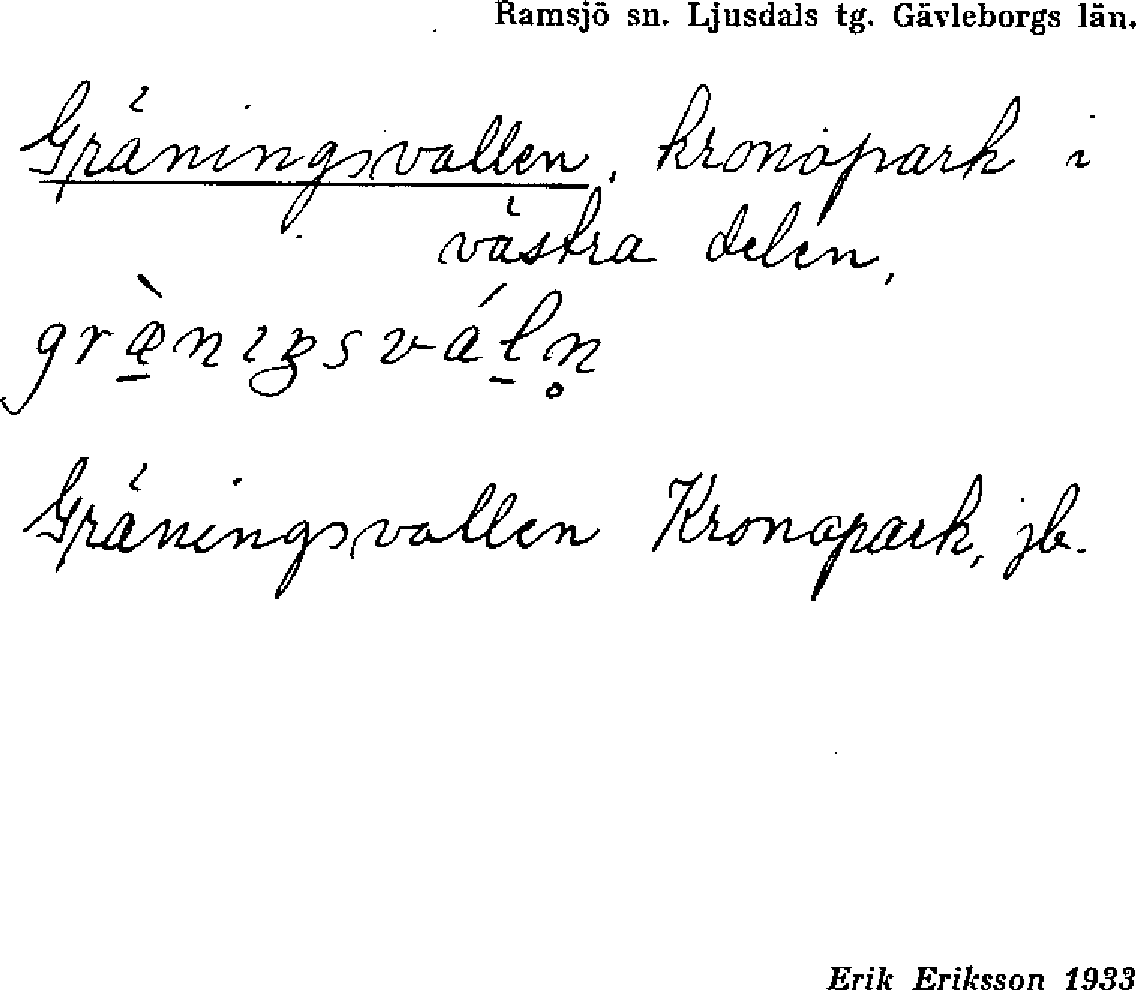 Ramsjö sn. Ljusdals tg. Gävleborgs län.
Gräningsvallen, kronopark i
västra delen,
græ̠̀nıŋsváł̠n̥
Gräningsvallen Kronopark, jb.
Erik Eriksson 1933